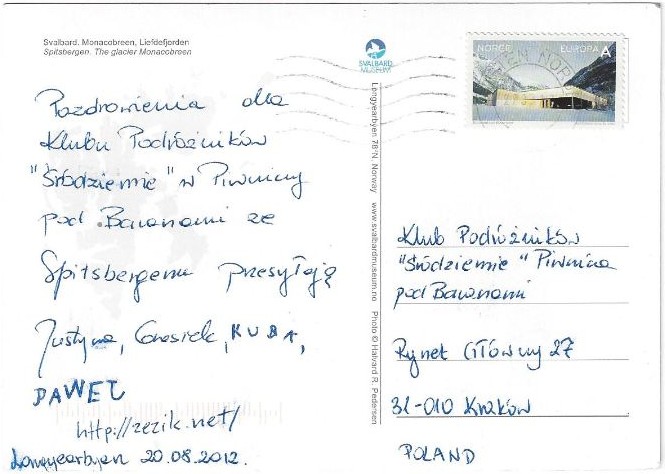 Svalbard. Monacobreen, Liefdefjorden
Spitsbergen. The glacier Monacobreen
SVALBARD
MUSEUM
NORGE EUROPA A
Pozdrowienia dla
Klubu Podróżników
"Śródziemie" w Piwnicy
pod Baranami ze
Spitsbergenu przesyłają
Justyna, Czesiek, KUBA,
PAWEŁ
http://zezik.net/
Longyearbyen 20.08.2012.
Longyearbyen 78°N, Norway www.svalbardmuseum.no Photo © Halvard R. Pedersen
Klub Podróżników
"Śródziemie" Piwnica
pod Baranami
Rynek Główny 27
31-010 Kraków
POLAND